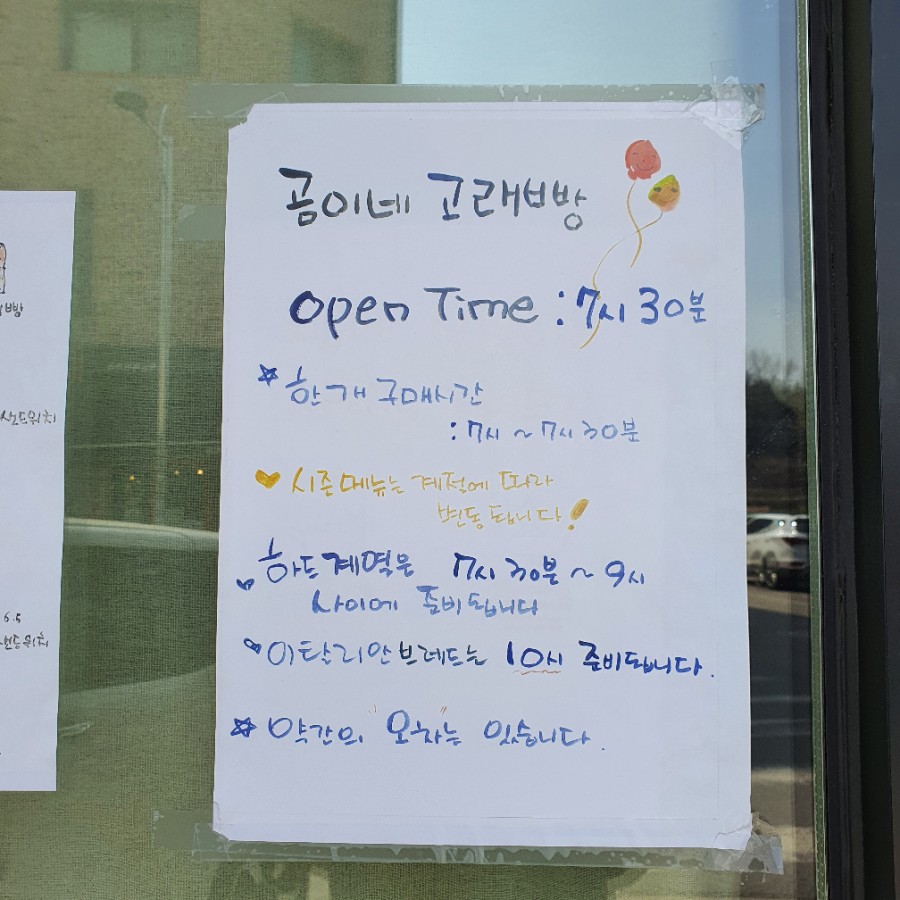 곰이네 고래빵
Open Time : 7시 30분
한개 구매시간
: 7시 ~ 7시 30분
시즌메뉴는 계절에 따라
변동됩니다!
하드계열은 7시 30분 ~ 9시
사이에 준비됩니다
이탈리안브레드는 10시 준비됩니다.
약간의 "오차"는 있습니다.
샌드위치
6.5